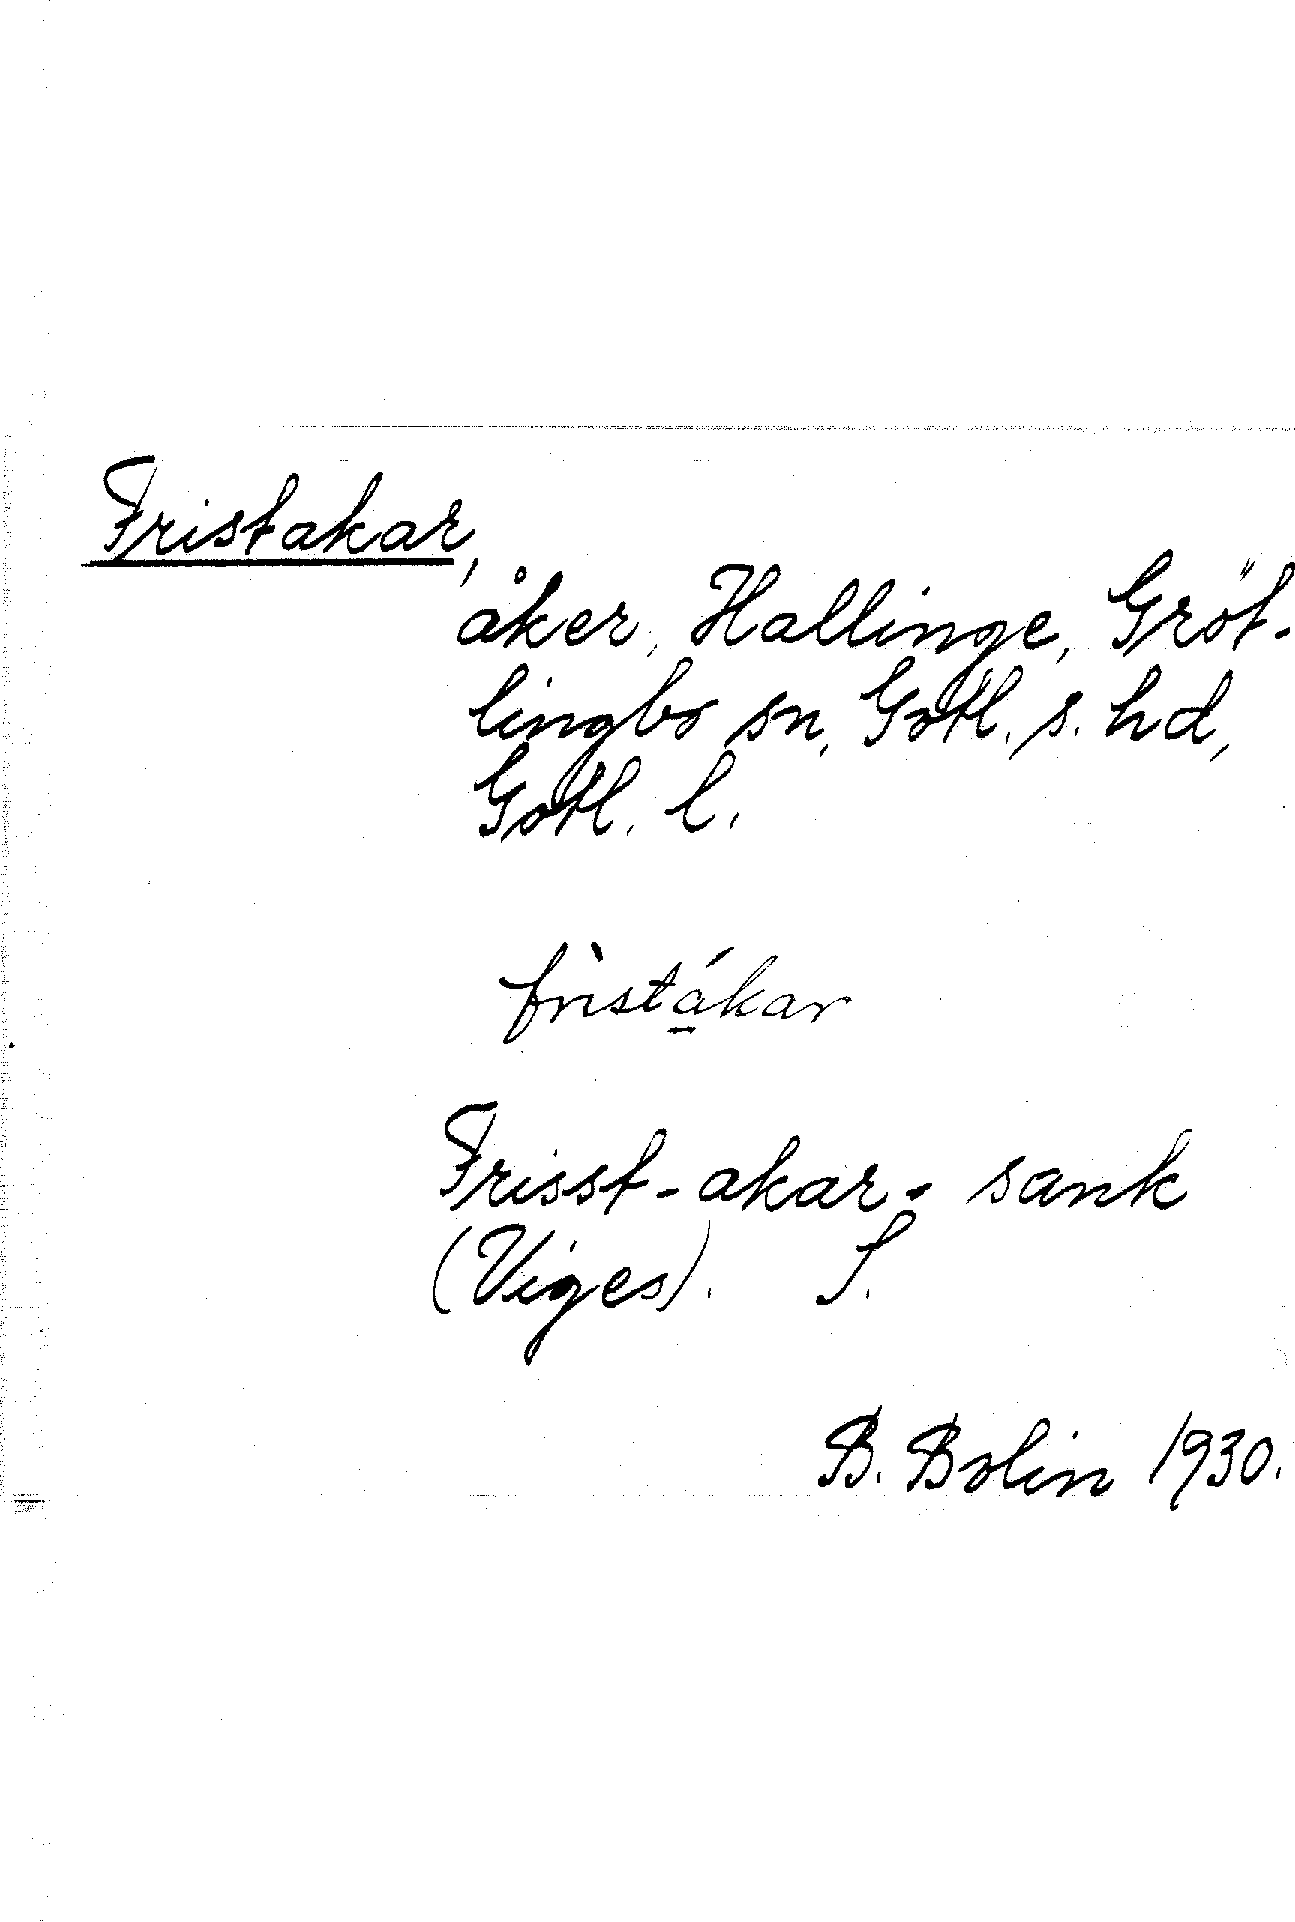 Fristakar,
åker, Hallinge, Gröt-
lingbo sn, Gotl. s. hd,
Gotl. l.
frìstá̱kar
Frisst-akar - sank
(Viges). S.
B. Bolin 1930.